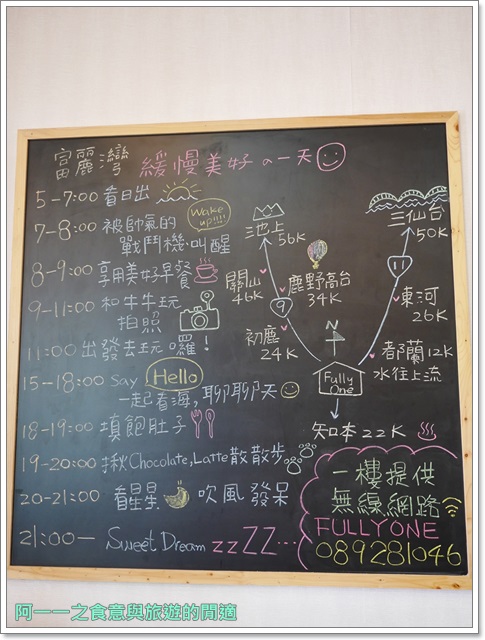 富麗灣 緩慢美好の一天
5-7:00 看日出
7-8:00 被帥氣的
戰鬥機叫醒
Wake up!!!!
8-9:00 享用美好早餐
9-11:00 和牛牛玩
拍照
11:00 出發去玩囉!
15-18:00 Say Hello
一起看海,聊聊天
18-19:00 填飽肚子
19-20:00 揪Chocolate,Latte散散步
20-21:00 看星星 吹風 發呆
21:00— Sweet Dream zzZZ...
三仙台
50K
池上
56K
關山
46K
鹿野高台
34K
9
11
東河
26K
初鹿
24K
N
都蘭12K
水往上流
Fully One
知本22K
一樓提供
無線網路
FULLYONE
089281046
阿一一之食意與旅遊的閒適